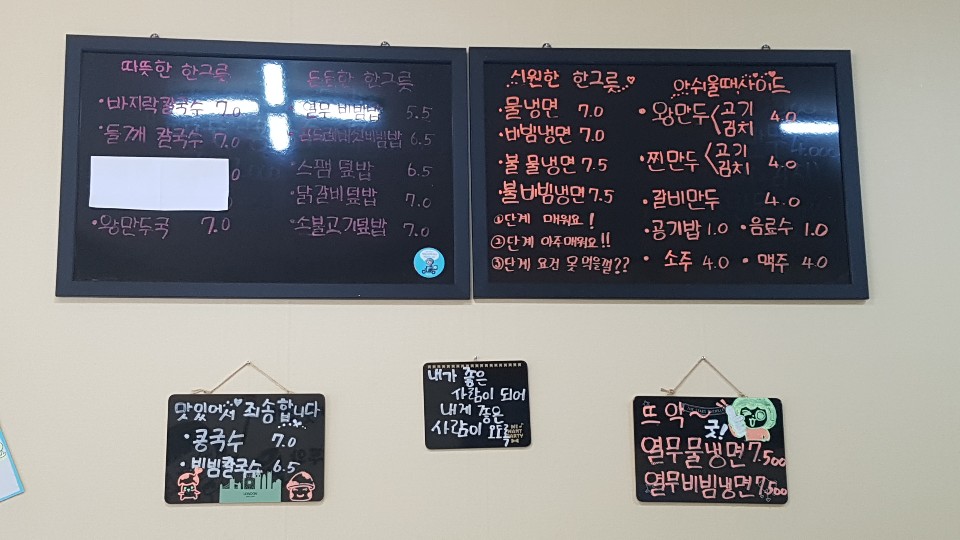 따뜻한 한그릇
•바지락칼국수 7.0
•들깨 칼국수 7.0
0
•왕만두국 7.0
든든한 한그릇
•열무 비빔밥 5.5
6.5
•스팸 덮밥 6.5
•닭갈비덮밥 7.0
•소불고기덮밥 7.0
시원한 한그릇
•물냉면 7.0
•비빔냉면 7.0
•불 물냉면 7.5
•불비빔냉면 7.5
①단계 매워요!
②단계 아주매워요!!
③단계 요건 못 먹을껄??
아쉬울때사이드
•왕만두<고기 김치 4.0
•찐만두<고기 김치 4.0
•갈비만두 4.0
•공기밥 1.0 •음료수 1.0
•소주 4.0 •맥주 4.0
맛있어서 죄송합니다
•콩국수 7.0
•비빔칼국수 6.5
내가 좋은
사람이 되어
내게 좋은
사람이 오도록
뜨악~굿!
열무물냉면 7.500
열무비빔냉면 7.500